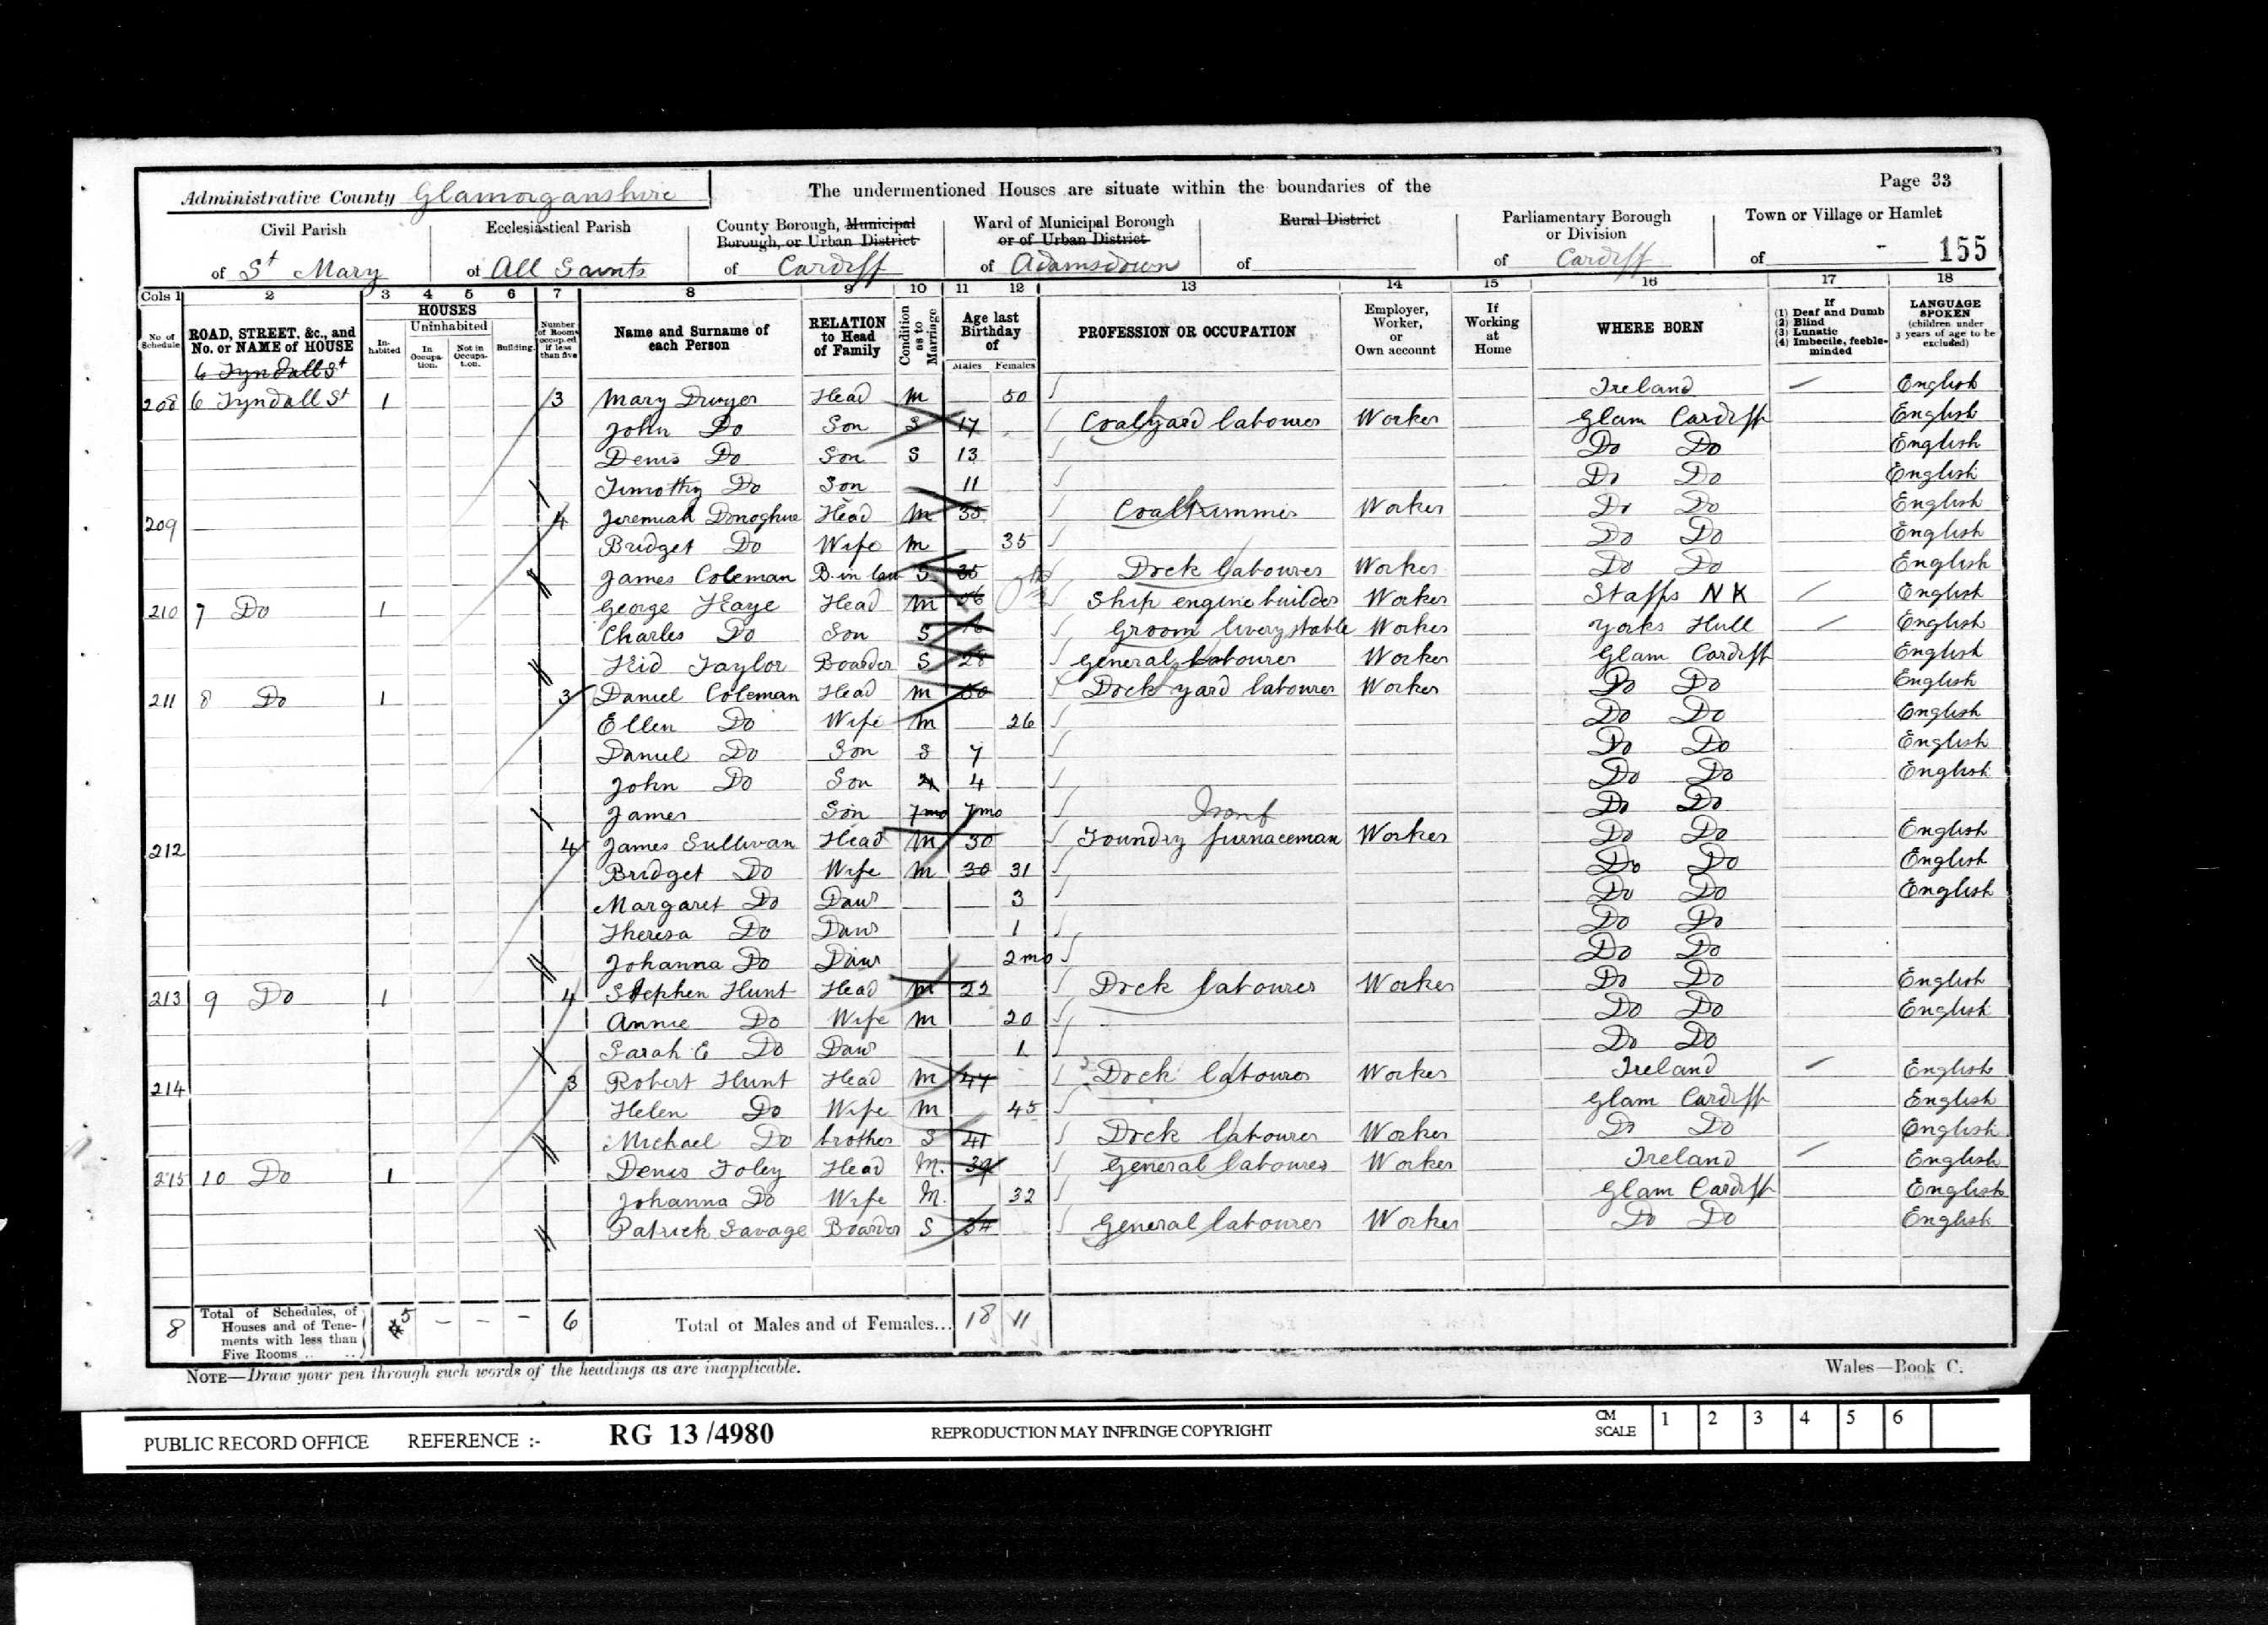 Administrative County Glamorganshire The undermentioned Houses are situate within the boundaries of the Page 33
Civil Parish Ecclesiastical Parish County Borough, Municipal Borough, or Urban District Ward of Municipal Borough or of Urban District Rural District Parliamentary Borough or Division Town or Village or Hamlet
of St Mary of All Saints of Cardiff of Adamsdown of of Cardiff of - 155
Cols 1 2 3 4 5 6 7 8 9 10 11 12 13 14 15 16 17 18
No of Schedule ROAD, STREET, &c., and No. or NAME of HOUSE HOUSES In-habited Uninhabited In Occupa-tion. Not in Occupa-tion. Building. Number of Rooms occupied if less than five Name and Surname of each Person RELATION to Head of Family Condition as to Marriage Age last Birthday of Males Females PROFESSION OR OCCUPATION Employer, Worker, or Own account If Working at Home WHERE BORN If (1) Deaf and Dumb (2) Blind (3) Lunatic (4) Imbecile, feeble-minded LANGUAGE SPOKEN (children under 3 years of age to be excluded)
6 Tyndall St
208 6 Tyndall St 1 3 Mary Dwyer Head M 50 Ireland English
John Do Son S 17 Coalyard labourer Worker Glam Cardiff English
Denis Do Son S 13 Do Do English
Timothy Do Son 11 Do Do English
209 4 Jeremiah Donoghue Head M 35 Coaltrimmer Worker Do Do English
Bridget Do Wife M 35 Do Do English
James Coleman B. in law S 35 Dock labourer Worker Do Do English
210 7 Do 1 George Haye Head M 56 Ship engine builder Worker Staffs NK English
Charles Do Son S 16 Groom livery stable Worker Yorks Hull English
Taylor Boarder S 28 General labourer Worker Glam Cardiff English
211 8 Do 1 3 Daniel Coleman Head M 30 Dock yard labourer Worker Do Do English
Ellen Do Wife M 26 Do Do English
Daniel Do Son S 7 Do Do English
John Do Son 4 4 Do Do English
James Son 7mo 7mo Do Do
Iron f
212 4 James Sullivan Head M 30 Foundry furnaceman Worker Do Do English
Bridget Do Wife M 30 31 Do Do English
Margaret Do Daur 3 Do Do English
Theresa Do Daur 1 Do Do
Johanna Do Daur 2mo Do Do
213 9 Do 1 4 Stephen Hunt Head M 22 Dock labourer Worker Do Do English
Annie Do Wife M 20 Do Do English
Sarah E Do Daur 1 Do Do
214 3 Robert Hunt Head M 47 Dock labourer Worker Ireland English
Helen Do Wife M 45 Glam Cardiff English
Michael Do brother S 41 Dock labourer Worker Do Do English
215 10 Do 1 Denis Foley Head M. 39 General labourer Worker Ireland English
Johanna Do Wife M. 32 Glam Cardiff English
Patrick Savage Boarder S 34 General labourer Worker Do Do English
8 Total of Schedules, of Houses and of Tene-ments with less than Five Rooms .. .. 5 - - - 6 Total of Males and of Females... 18 11
NOTE—Draw your pen through such words of the headings as are inapplicable. Wales—Book C.
PUBLIC RECORD OFFICE REFERENCE :- RG 13 /4980 REPRODUCTION MAY INFRINGE COPYRIGHT CM SCALE 1 2 3 4 5 6